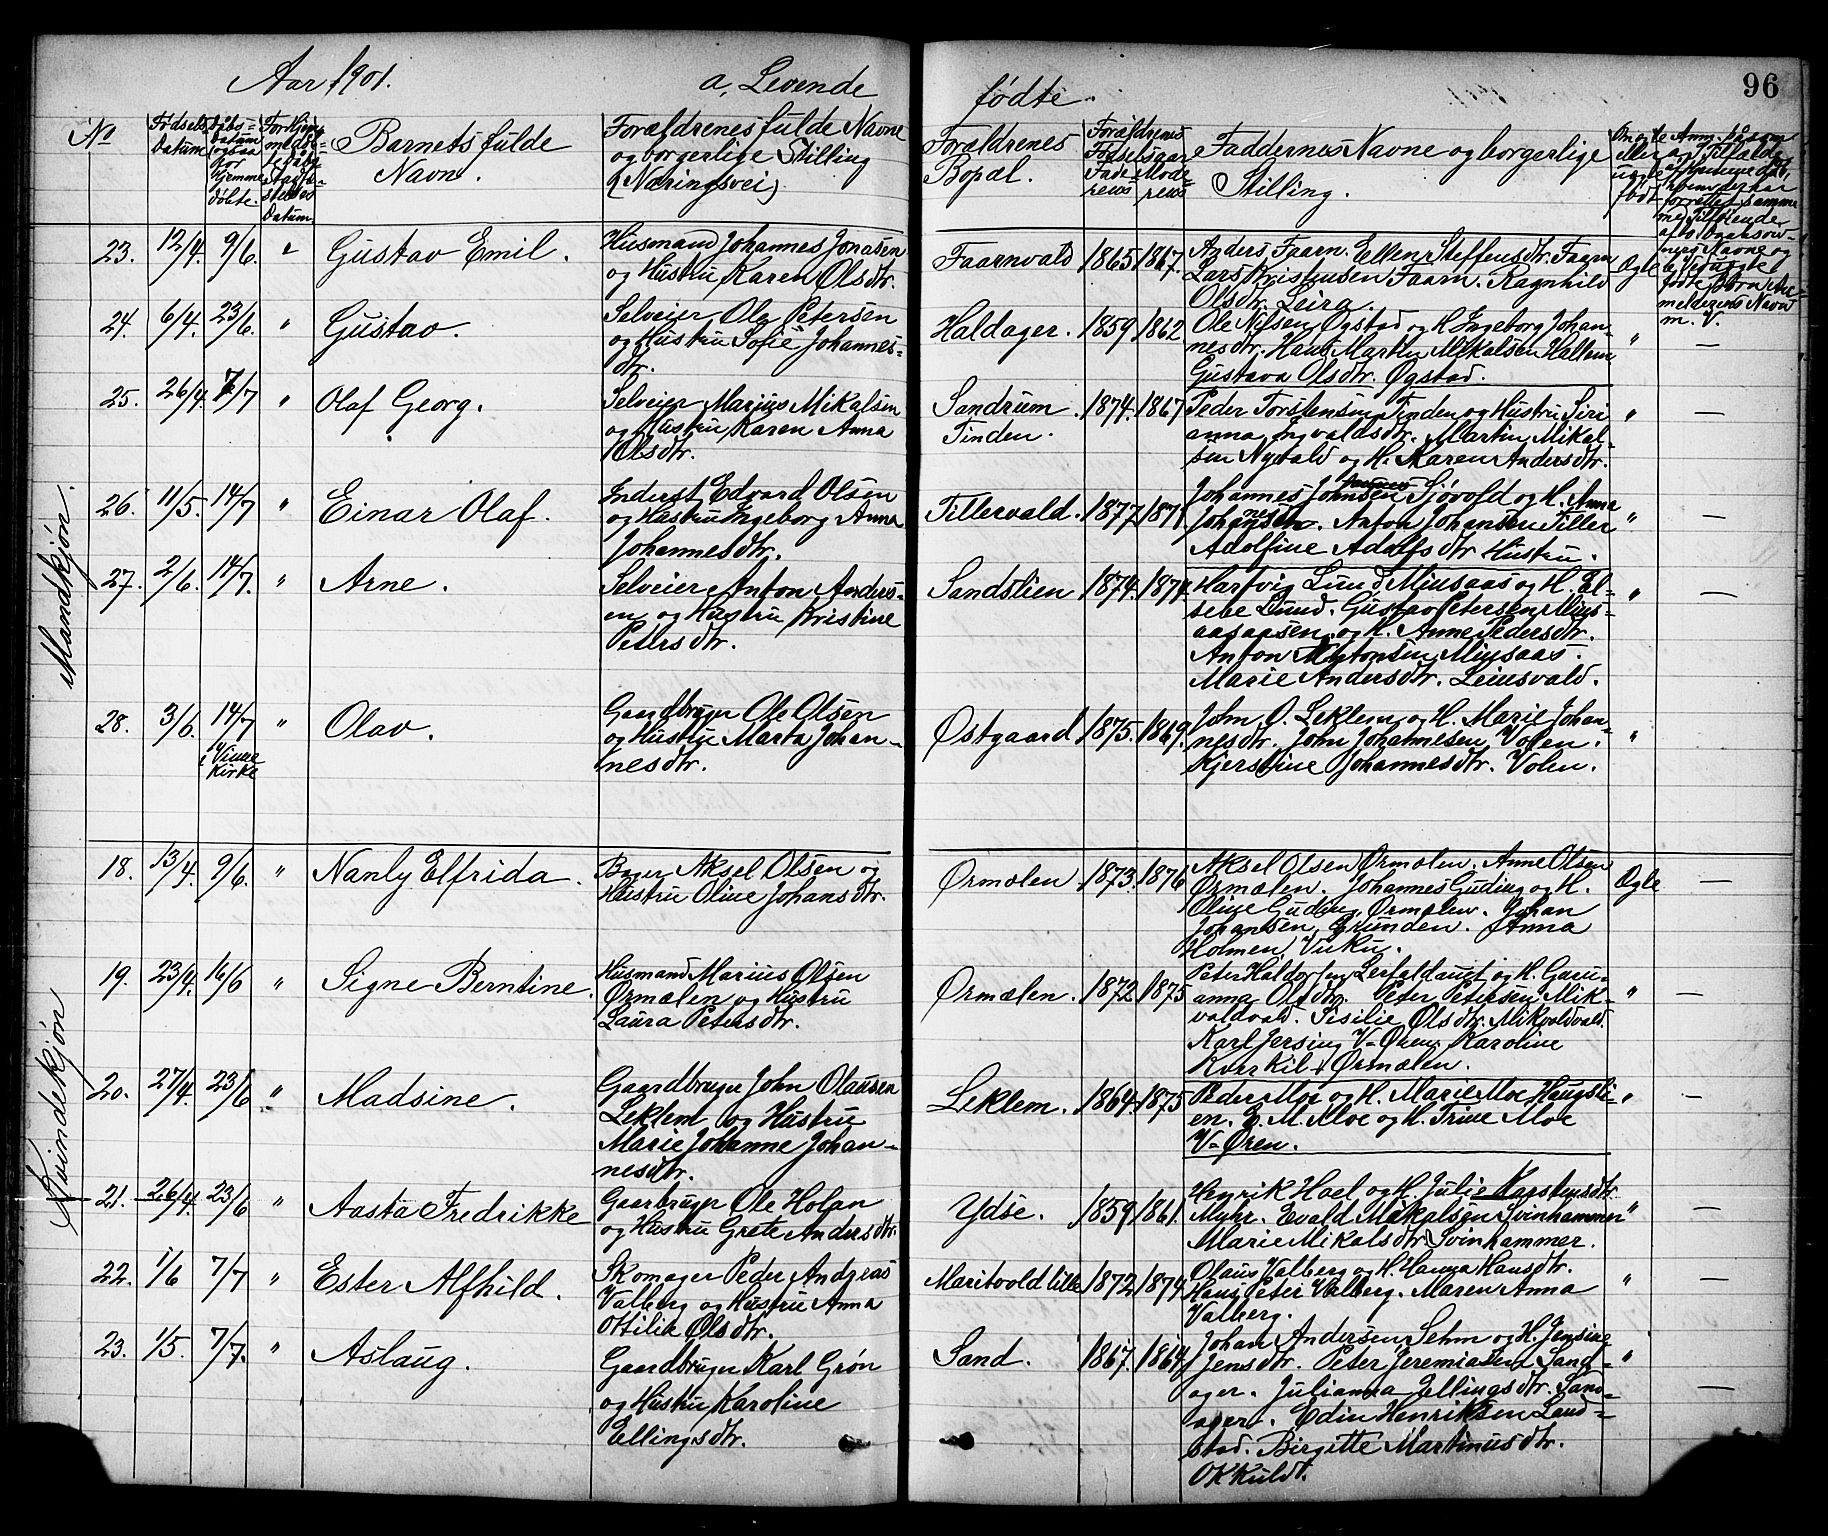 Aar 1901. a, Levende fødte. 96
No
Fødsels Datum
Daabs-Datum
Barnets fulde
Navn.
Forældrenes fulde Navne
og borgerlige Stilling
(Næringsvei)
Forældrenes
Bopæl.
Forældrenes
Fødselsaar
Faderens Moderens
Faddernes Navne og borgerlige
Stilling.
Om ægte
eller
uægte
født
Mandkjøn.
23. 12/4. 9/6. " Gustav Emil.
Husmand Johannes Jonasen
og Hustru Karen Olsdtr.
Faarnvald 1865 1867.
Anders Faarn. Ellen Steffensdtr. Faarn
Lars Kristensen Faarn. Ragnhild
Olsdtr. Leira.
Ægte
24. 6/4. 23/6. " Gustav.
Selveier Ole Petersen
og Hustru Sofie Johannes-
dtr.
Haldager. 1859 1862
Ole Nilsen Øgstad og H. Ingeborg Johan-
nesdtr. Hans Martin Mikalsen Hallem
Gustava Olsdtr. Øgstad.
" —
25. 26/4. 7/7 " Olaf Georg.
Selveier Marius Mikalsen
og Hustru Karen Anna
Olsdtr.
Sandrum
Tinden.
1874. 1867
Peder Torstensen Tinden og Hustru Siri
anna Ingvaldsdtr. Martin Mikal-
sen Nyvald og H. Karen Andersdtr.
" —
26. 11/5. 14/7 " Einar Olaf.
Inderst Edvard Olsen
og Hustru Ingeborg Anna
Johannesdtr.
Tillervald. 1877. 1871
Johannes Johnsen Sjøvold og H. Anna
Anton Johansen Tiller
Adolfine Adolfsdtr Hustru.
" —
27. 2/6. 14/7. " Arne.
Selveier Anton Anders-
en og Hustru Kristine
Petersdtr.
Sandslien 1874. 1874.
Hartvig Lund Miusaas og H. El-
sebe Lund. Gustav Petersen Mius-
aasaasen og H. Anne Pedersdtr.
Anton Antonsen Miusaas.
Marie Andersdtr. Leinsvald.
" —
28. 3/6. 14/7 " Olav.
i Vinne
Kirke
Gaardbruger Ole Olsen
og Hustru Marta Johan-
nesdtr.
Østgaard 1875. 1869.
John O. Leklem og H. Marie Johan-
nesdtr. John Johannesen Volen.
Kjerstine Johannesdtr. Volen.
"
Kvindekjøn
18. 13/4. 9/6. " Nanly Elfrida.
Bager Aksel Olsen og
Hustru Oline Johansdtr.
Ørmælen 1873. 1876
Aksel Olsen Ørmælen. Anne Olsen
Ørmælen. Johannes Guding og H.
Oline Guding Ørmælen. Johan
Johansen Grunden. Anna
Holmen, Vuku.
Ægte —
19. 23/4. 16/6 " Signe Berntine.
Husmand Marius Olsen
Ørmælen og Hustru
Laura Petersdtr.
Ørmælen. 1872 1875
Peter Haldorsen Leirfaldaugt og H. Guru-
anna Olsdtr. Peter Petersen Mik-
valdvald. Sisilie Olsdtr. Mikvoldvald.
Karl Jersing V-Øren. Karoline
Ørmælen.
" —
20. 27/4. 23/6 " Madsine.
Gaardbruger John Olausen
Leklem og Hustru
Marie Johanne Johan-
nesdtr.
Leklem. 1864. 1875
Peder Moe og H. Marie Moe Haugsli-
en. E. M. Moe og H. Trine Moe
V-Øren.
" —
21. 26/4. 23/6 " Aasta Fredrikke
Gaarbruger Ole Holan
og Hustru Grete Andersdtr.
Ydse. 1859 1861.
Henrik Hoel og H. Julie Karstensdtr.
Myhr. Evald Mikalsen Svinhammer
Marie Mikalsdtr Svinhammer.
" —
22. 1/6 7/7 " Ester Alfhild.
Skomager Peder Andreas
Valberg og Hustru Anna
Ottilie Olsdtr.
Maritvold lille 1872 1874
Olaus Valberg og H. Hanna Hansdtr.
Hans Peter Valberg. Maren Anna
Valberg.
" —
23. 1/5. 7/7. " Aslaug.
Gaardbruger Karl Grøn
og Hustru Karoline
Ellingsdtr.
Sand. 1867. 1864
Johan Andersen Sehm og H. Jensine
Jensdtr. Peter Jeremiasen Sand-
ager. Julianna Ellingsdtr. Sand-
ager. Edin Henriksen Lund-
stad. Birgitte Martinusdtr.
Okkuldt.
" —